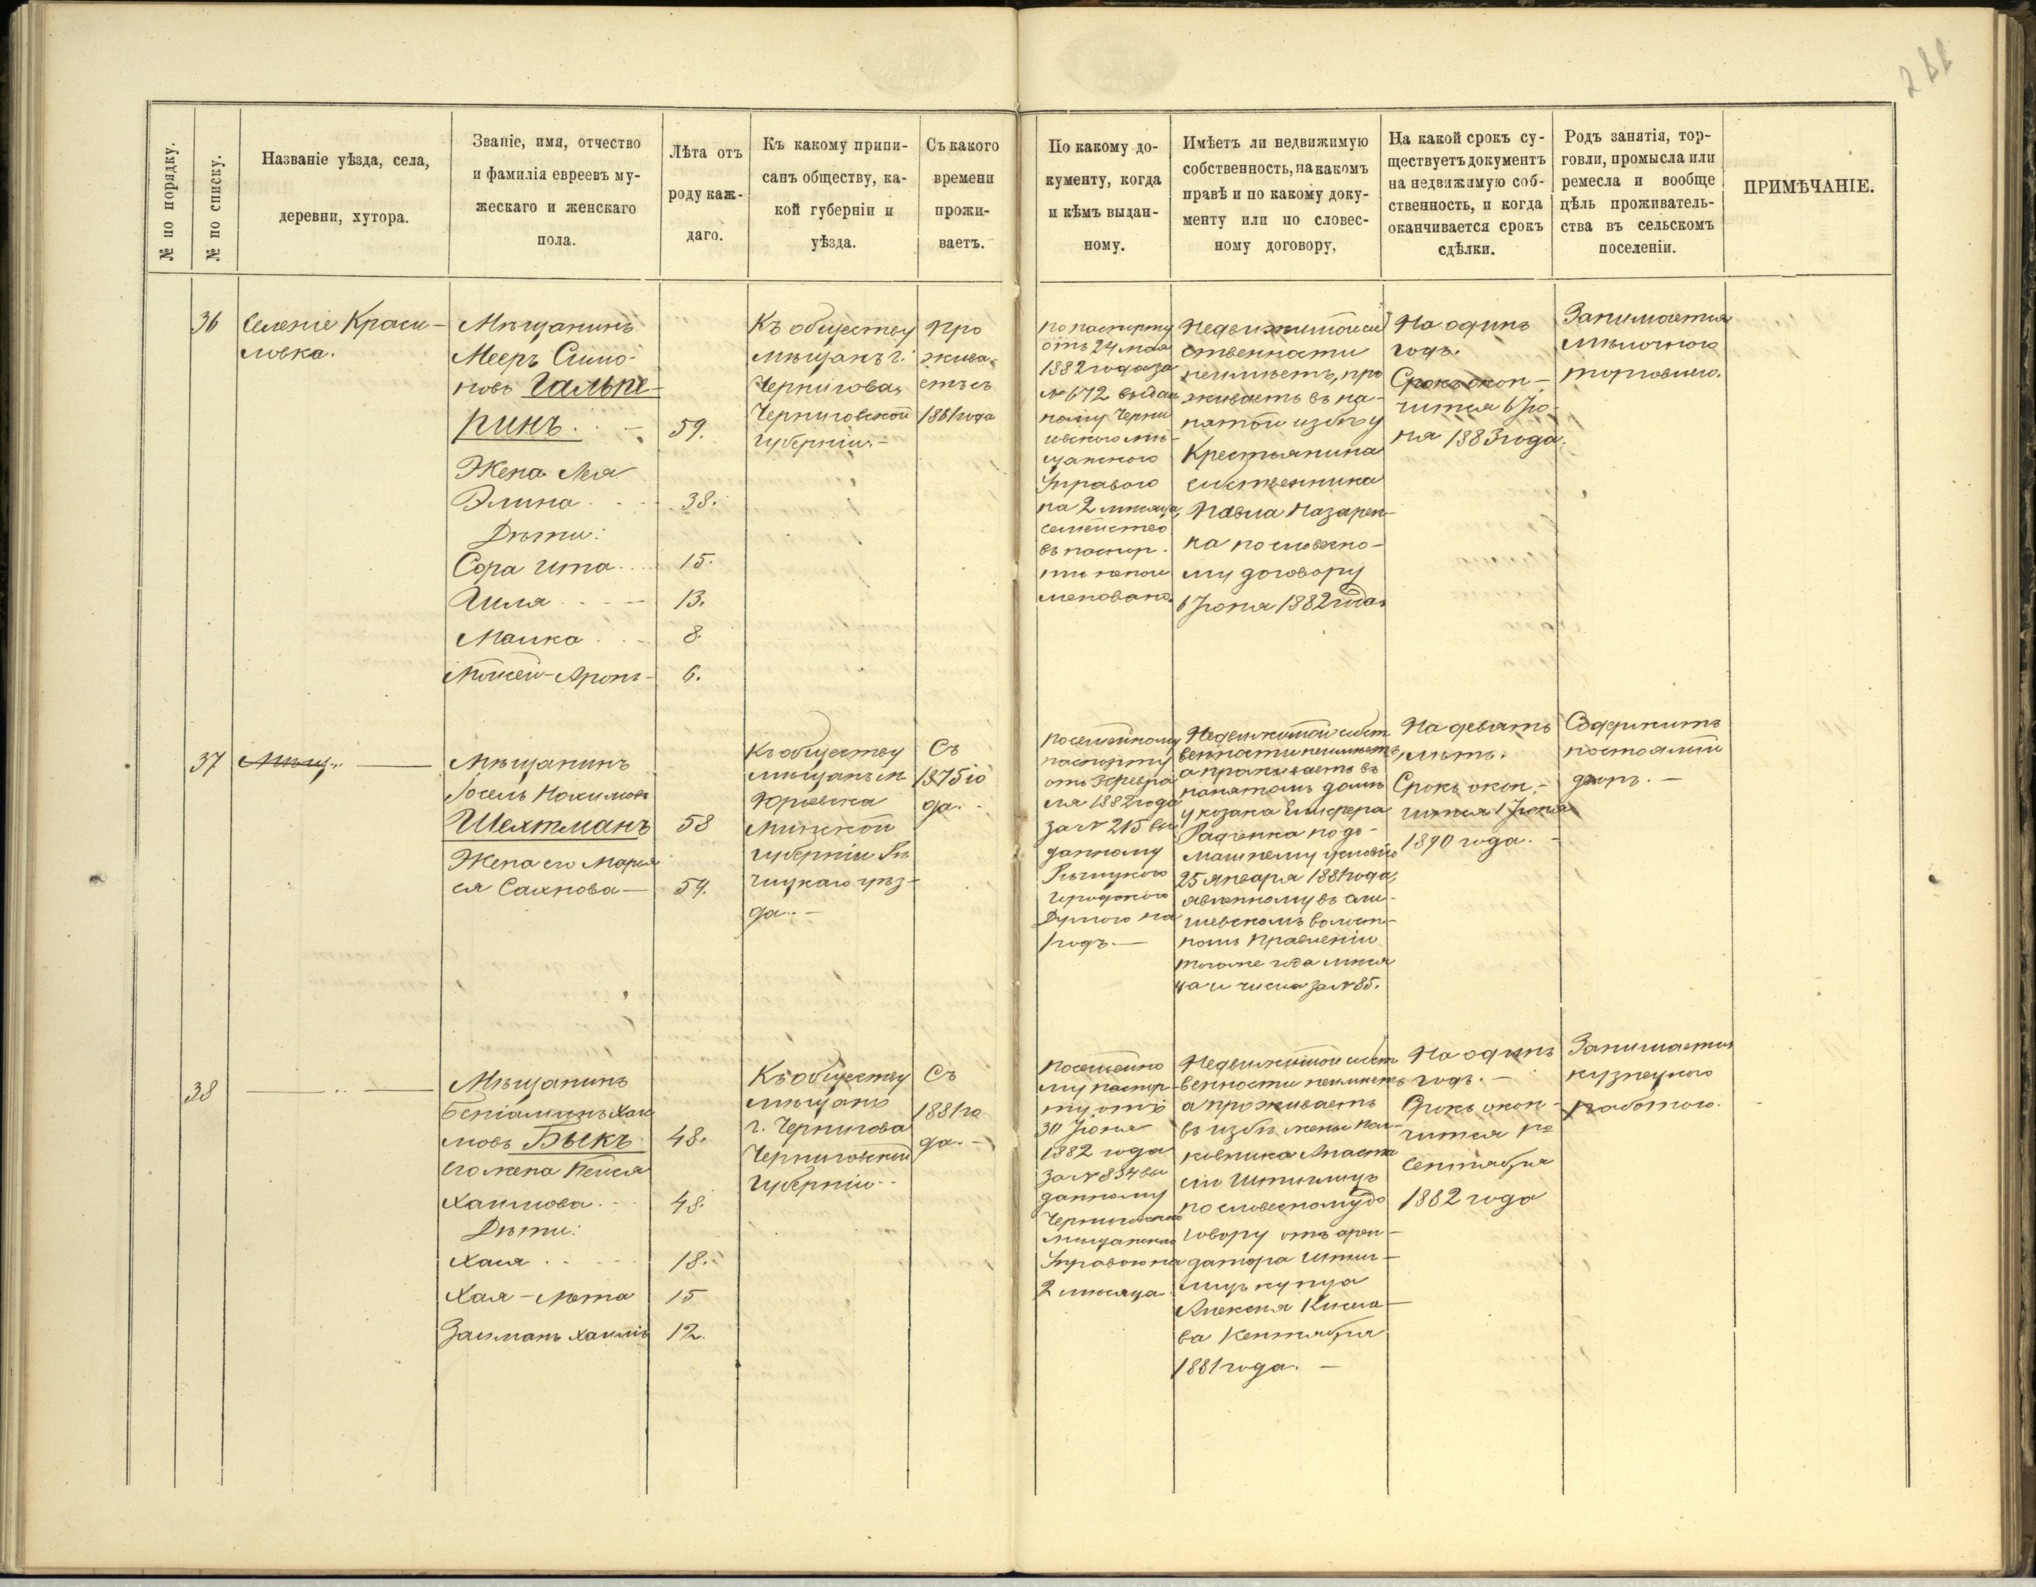 211
№ по порядку.
№ по списку.
Названіе уѣзда, села,
деревни, хутора.
Званіе, имя, отчество
и фамилія евреевъ му-
жескаго и женскаго
пола.
Лѣта отъ
роду каж-
даго.
Къ какому припи-
санъ обществу, ка-
кой губерніи и
уѣзда.
Съ какого
времени
прожи-
ваетъ.
По какому до-
кументу, когда
и кѣмъ выдан-
ному.
Имѣетъ ли недвижимую
собственность, на какомъ
правѣ и по какому доку-
менту или по словес-
ному договору,
На какой срокъ су-
ществуетъ документъ
на недвижимую соб-
ственность, и когда
оканчивается срокъ
сдѣлки.
Родъ занятія, тор-
говли, промысла или
ремесла и вообще
цѣль проживатель-
ства въ сельскомъ
поселеніи.
ПРИМѢЧАНІЕ.
36
Селеніе Краси-
ловка.
Мѣщанинъ
Мееръ Симо-
новъ Гальпе-
ринъ. 59.
Жена Лея
Элина 38.
Дѣти:
Сора Гита 15.
Гиля 13.
Малка 8
Мойсей-Аронъ 6.
Къ обществу
мѣщанъ г.
Чернигова,
Черниговской
губерніи.-
Про
жива-
етъ съ
1861 года
По паспорту
отъ 24 мая
1882 года за
№ 672 выдан
ному Черни
говского мѣ-
щанского
Управого
на 2 мѣсяца,
семейство
въ паспор-
тѣ непои
меновано.
Недвижимой соб
ственности
неимѣетъ, про
живаетъ въ на-
нятой избѣ у
Крестьянина
собственника
Павла Назарен-
ка по словесно-
му договору
6 Іюня 1882 года.
На одинъ
годъ.
Срокъ окон-
чится 6 Ію-
ня 1883 года.
Занимается
мѣлочного
торговлего.
37
Мѣщ.
Мѣщанинъ
Іосель Нохимовъ
Шехтманъ 58
Жена его Марья
ся Сахнова- 54.
Къ обществу
мѣщанъ м.
Юревска
Минской
губерніи Рѣ
чицкаго уѣз-
да.-
Съ
1875 го
да.-
По семейному
паспорту
отъ 3 Февра
ля 1882 года
за № 215 вы
данному
Рѣчицкого
Городского
Думого на
1 годъ.-
Недвижимой собст
венности неимѣетъ,
а проживаетъ въ
нанятомъ домѣ
у козака Елисфера
Радченка по до-
машнему условію
25 Января 1881 года,
явленному въ оли-
шевскомъ волост-
номъ Правленіи
того же года мѣся
ца и числа за № 85.
На девять
лѣтъ.
Срокъ окон-
чится 1 Іюня
1890 года.-
Содержитъ
постоялый
дворъ.-
38
Мѣщанинъ
Беніаминъ Хаи
мовъ Быкъ 48.
его жена Песся
Хаимова 48.
Дѣти:
Хася 18.
Хая-Лота 15
Залманъ Хаимъ 12.
Къ обществу
мѣщанъ
г. Чернигова
Черниговской
губерніи-
Съ
1881 го
да.-
По семейно
му паспор-
ту отъ
30 Іюня
1882 года
за № 834 вы
данному
Черниговского
мѣщанского
Управого на
2 мѣсяца.
Недвижимой собст
венности неимѣетъ
а проживаетъ
въ избѣ жены пол-
ковника Анаста
сіи Штиглицъ
по словесному до
говору отъ арен-
датора Штиг-
лицъ купца
Алексѣя Кисѣле-
ва 1 Сентября
1881 года.-
На одинъ
годъ.-
Срокъ окон-
чится 1го
Сентября
1882 года
Занимается
кузнецкого
работого.